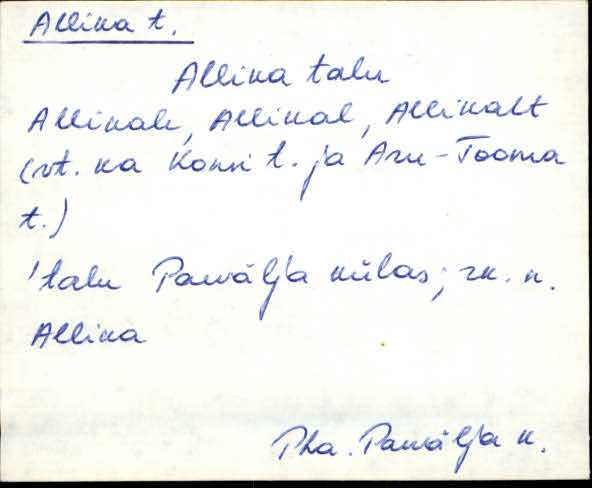 Allika t.
Allika talu
Allikale, Allikal, Allikalt
(vt. ka Konsi t. ja Aru-Tooma
t.)
'talu Pawälja külas; rk. n.
Allika
Pha. Pawälja k.